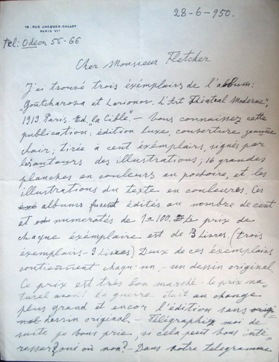 28-6-950.
16, RUE JACQUES CALLOT
PARIS VIe
tel: Odéon 55-66
Cher Monsieur Fletcher
J'ai trouvé trois exémplairs de l'album:
Gontcharova et Larionov. L'Art Théatral Moderne.
1919 Paris. Ed. la Cible. – Vous connaissez cette
publication, édition luxe, couverture jaune
clair, tirée à cent exémplairs, signés par
les autours des illustrations; 16 grandes
planches en couleurs au pochoire, et les
illustrations du texte en couleures. Ces
albums furent édités au nombre de cent
et numerotés de 1 à 100. Le prix de
chaque éxémplaire est de 3 Livres (trois
exemplairs - 9 Livres) Deux de ces éxemplairs
contiennent chaqu'un - un dessin original.
Ce prix est très bon marché. le prix na
turel avant la guerre était au change
plus grand et encor l'édition sans origi
nal dessin original. – Télégraphiez moi de
suite je vous prie, si cela peut vous inté
resser oui ou non? Dans notre telegramme